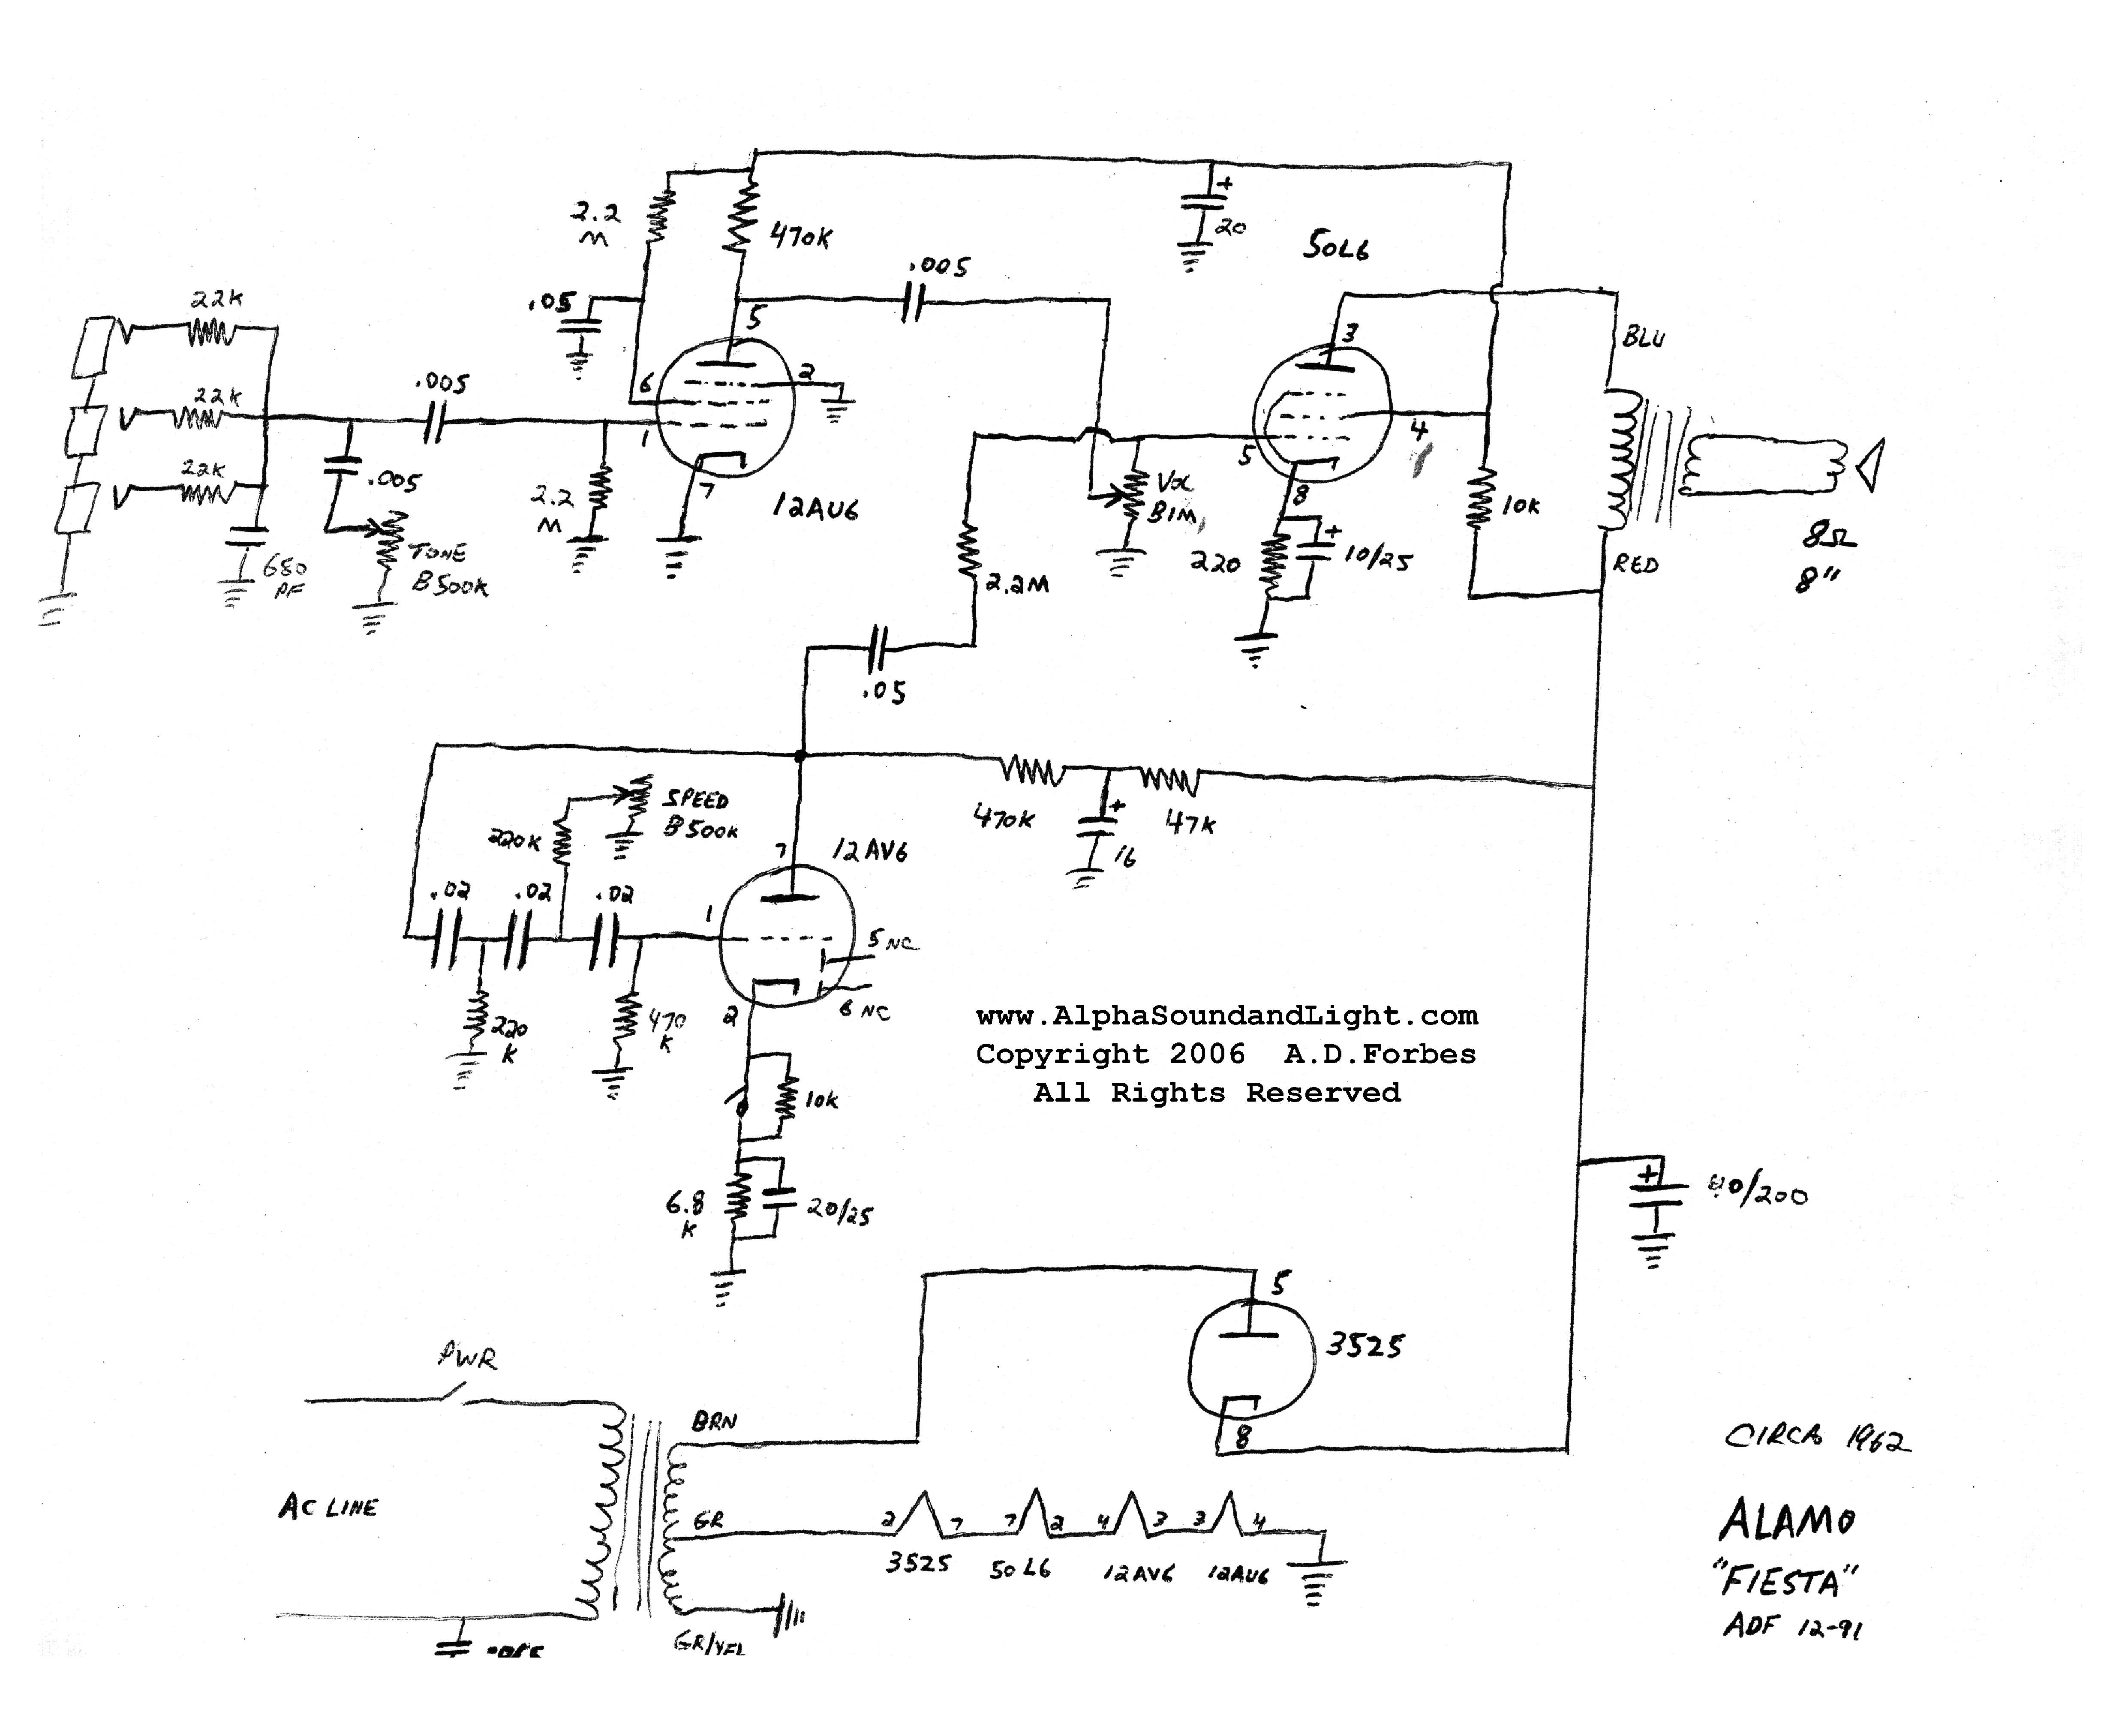 22K
22K
22K
680
PF
.005
TONE
B500K
.005
2.2
M
2.2
M
.05
470K
.005
5
6
2
1
7
12AU6
20
50L6
3
4
5
8
VOL
B1M
220
10/25
10K
BLU
RED
8Ω
8"
2.2M
.05
470K
47K
16
SPEED
B500K
220K
.02
.02
.02
220
K
470
K
7
12AV6
1
2
5 NC
6 NC
10K
6.8
K
20/25
www.AlphaSoundandLight.com
Copyright 2006 A.D.Forbes
All Rights Reserved
40/200
5
3525
8
PWR
AC LINE
BRN
GR
GR/YEL
2 7 7 2 4 3 3 4
3525 50L6 12AV6 12AU6
CIRCA 1962
ALAMO
"FIESTA"
ADF 12-91